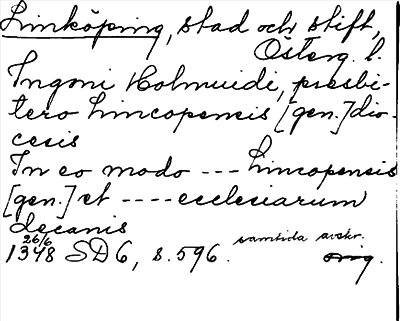 Linköping, stad och stift,
Österg. l.
Ingoni Holmuidi, presbi-
tero Lincopensis [gen.] dio-
cesis
In eo modo --- Lincopensis
[gen.] et ---- ecclesiarum
decanis
26/6
1348 SD 6, s. 596. samtida avskr.
orig.